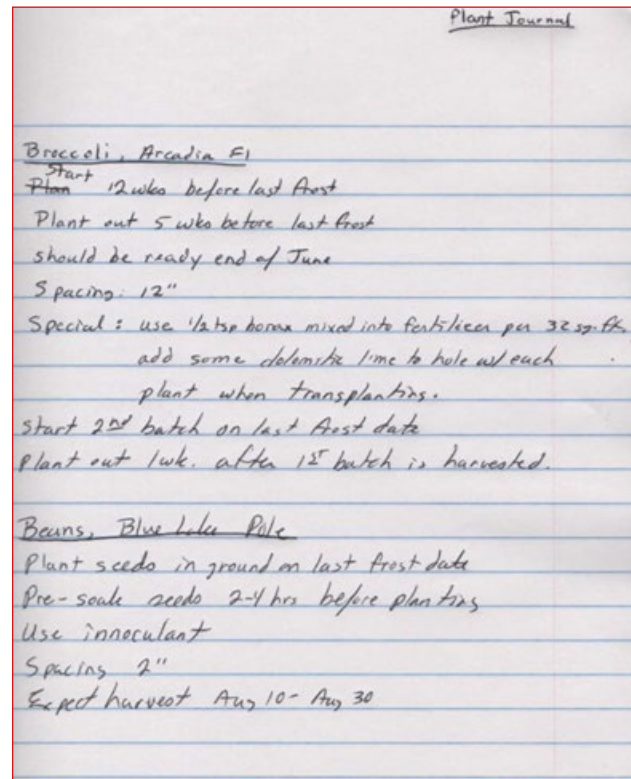 Plant Journal
Broccoli, Arcadia F1
Start
Plan 12 wks before last frost
Plant out 5 wks before last frost
should be ready end of June
Spacing: 12"
Special: use 1/2 tsp borax mixed into fertilizer per 32 sq. ft.
add some dolomitic lime to hole w/ each
plant when transplanting.
Start 2nd batch on last frost date
Plant out 1wk. after 1st batch is harvested.
Beans, Blue Lake Pole
Plant seeds in ground on last frost date
Pre-soak seeds 2-4 hrs before planting
Use innoculant
Spacing 2"
Expect harvest Aug 10 - Aug 30